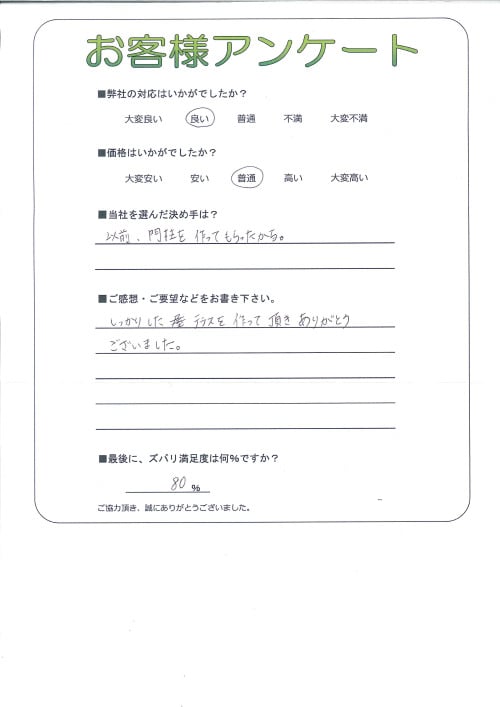 お客様アンケート
■弊社の対応はいかがでしたか？
大変良い 良い 普通 不満 大変不満
■価格はいかがでしたか？
大変安い 安い 普通 高い 大変高い
■当社を選んだ決め手は？
以前、門柱を作ってもらったから。
■ご感想・ご要望などをお書き下さい。
しっかりした テラスを作って頂きありがとう
ございました。
■最後に、ズバリ満足度は何％ですか？
80 %
ご協力頂き、誠にありがとうございました。